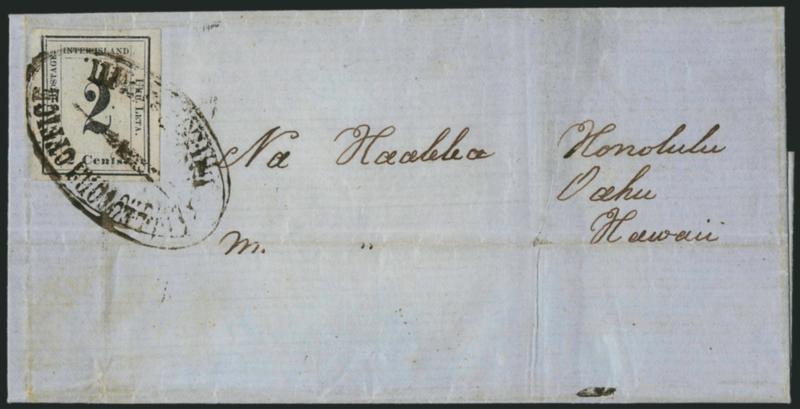 INTER ISLAND
POSTAGE.
UKU LETA.
2
2 Cents
OFFICE
Na Haalelea Honolulu
Oahu
m. " Hawaii